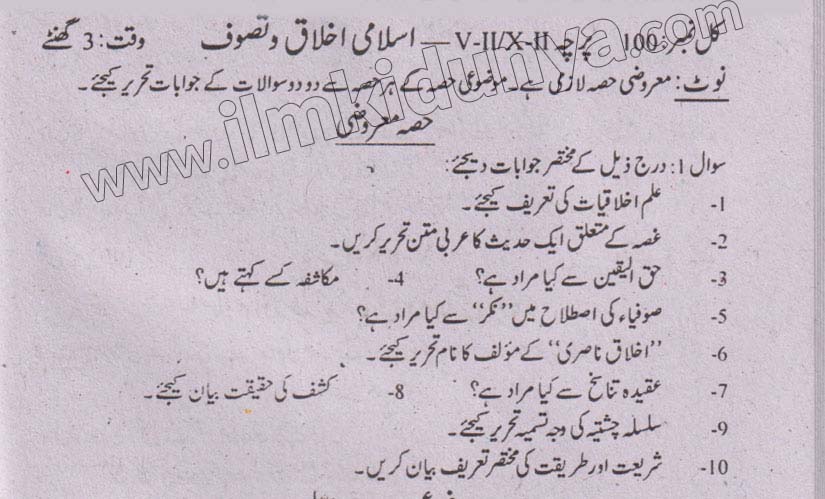 کل نمبر: 100 پرچہ V-II/X-II — اسلامی اخلاق و تصوف وقت: 3 گھنٹے
نوٹ: معروضی حصہ لازمی ہے۔ موضوعی حصہ کے ہر حصہ سے دو دو سوالات کے جوابات تحریر کیجئے۔
حصہ معروضی
سوال 1: درج ذیل کے مختصر جوابات دیجئے:
1- علم اخلاقیات کی تعریف کیجئے۔
2- غصہ کے متعلق ایک حدیث کا عربی متن تحریر کریں۔
3- حق الیقین سے کیا مراد ہے؟ 4- مکاشفہ کسے کہتے ہیں؟
5- صوفیاء کی اصطلاح میں ”نکر“ سے کیا مراد ہے؟
6- ”اخلاق ناصری“ کے مؤلف کا نام تحریر کیجئے۔
7- عقیدہ تناسخ سے کیا مراد ہے؟ 8- کشف کی حقیقت بیان کیجئے۔
9- سلسلہ چشتیہ کی وجہ تسمیہ تحریر کیجئے۔
10- شریعت اور طریقت کی مختصر تعریف بیان کریں۔
www.ilmkidunya.com